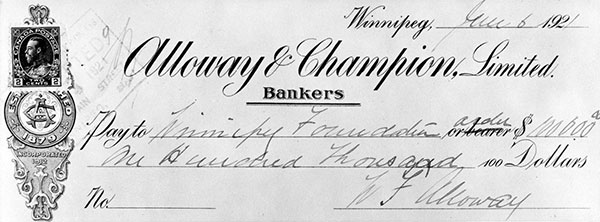 Winnipeg, June 6 1921
CANADA POSTAGE
2 2
Alloway & Champion, Limited.
Bankers
ESTABLISHED
1879
INCORPORATED
1912
Pay to Winnipeg Foundation or bearer order $ 100,000 00
One Hundred Thousand 100 Dollars
No. W F Alloway